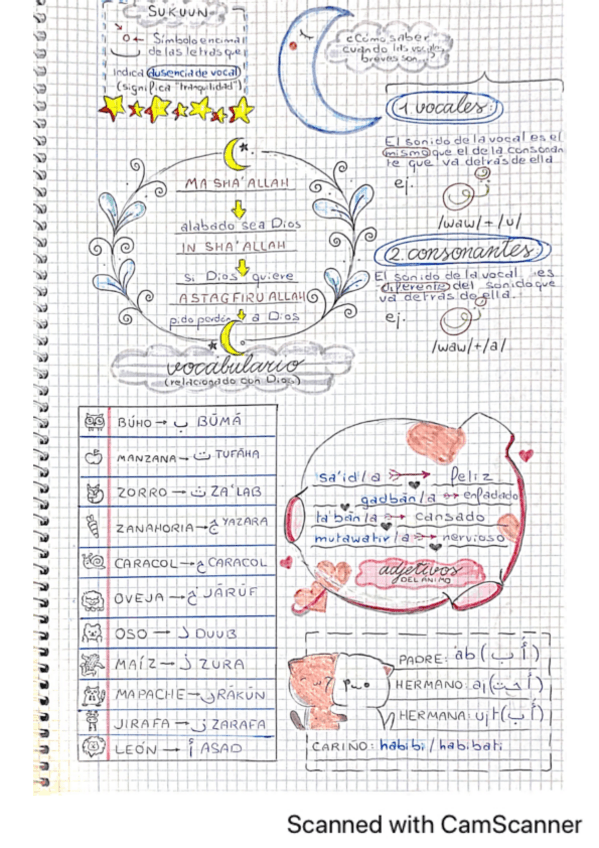 SUKUUN
o← Símbolo encima
de las letras que
indica ausencia de vocal
(significa "tranquilidad")
¿Cómo saber
cuando las vocales
breves son...?
1 vocales:
El sonido de la vocal es el
mismo que el de la consonan
te que va detrás de ella.
ej.
/waw/+/u/
2. consonantes:
El sonido de la vocal es
diferente del sonido que
va detrás de ella.
ej.
/waw/+/a/
MA SHA'ALLAH
alabado sea Dios
IN SHA'ALLAH
si Dios quiere
ASTAGFIRU ALLAH
pido perdón a Dios
vocabulario
(relacionado con Dios)
BÚHO → ب BŪMĀ
MANZANA → ت TUFĀHA
ZORRO → ث ZA'LAB
ZANAHORIA → ج YAZARA
CARACOL → ح CARACOL
OVEJA → خ JĀRŪF
OSO → د DUUB
MAÍZ → ذ ZURA
MAPACHE → ر RĀKŪN
JIRAFA → ز ZARAFA
LEÓN → أ ASAD
sa'id/a → feliz
gadbān/a → enfadado
ta'bān/a → cansado
mutawatir/a → nervioso
adjetivos
DEL ÁNIMO
PADRE: ab (أ ب)
HERMANO: aj
HERMANA: ujt
CARIÑO: habibi/habibati
Scanned with CamScanner